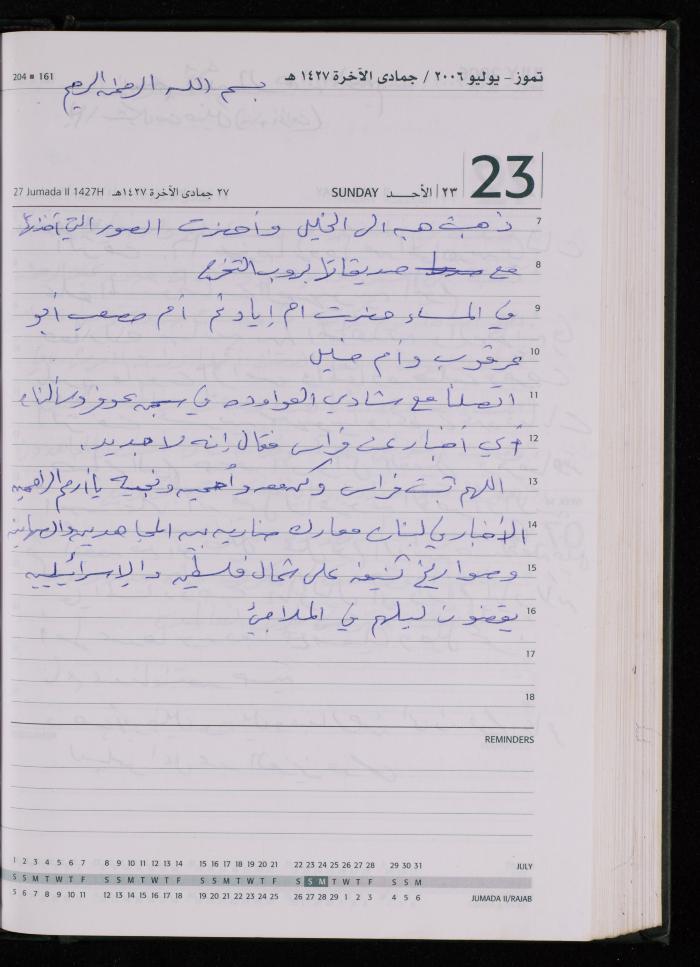 204 ■ 161
تموز - يوليو ٢٠٠٦ / جمادى الآخرة ١٤٢٧ هـ
بسم الله الرحمن الرحيم
23
27 Jumada II 1427H ٢٧ جمادى الآخرة ١٤٢٧هـ SUNDAY الأحـــد ٢٣
7 ذهبت هبه الى الخليل وأحضرت الصور التي أخذتها
8 مع صديقاتها بروب التخرج
9 في المساء حضرت ام إياد ثم أم مصعب أبو
10 عرقوب وأم خليل
11 اتصلنا مع شادي العواوده في سجن عوفر وسألناه
12 أي أخبار عن فراس فقال إنه لا جديد.
13 اللهم ثبت فراس ومن معه وأحميه ونجيه يا أرحم الراحمين
14 الأخبار في لبنان معارك ضاريه بين المجاهدين والصهاينه
15 وصواريخ عنيفه على شمال فلسطين والإسرائيليين
16 يقضون ليلهم في الملاجئ
17
18
REMINDERS
1 2 3 4 5 6 7 8 9 10 11 12 13 14 15 16 17 18 19 20 21 22 23 24 25 26 27 28 29 30 31 JULY
S S M T W T F S S M T W T F S S M T W T F S S M T W T F S S M
5 6 7 8 9 10 11 12 13 14 15 16 17 18 19 20 21 22 23 24 25 26 27 28 29 1 2 3 4 5 6 JUMADA II/RAJAB